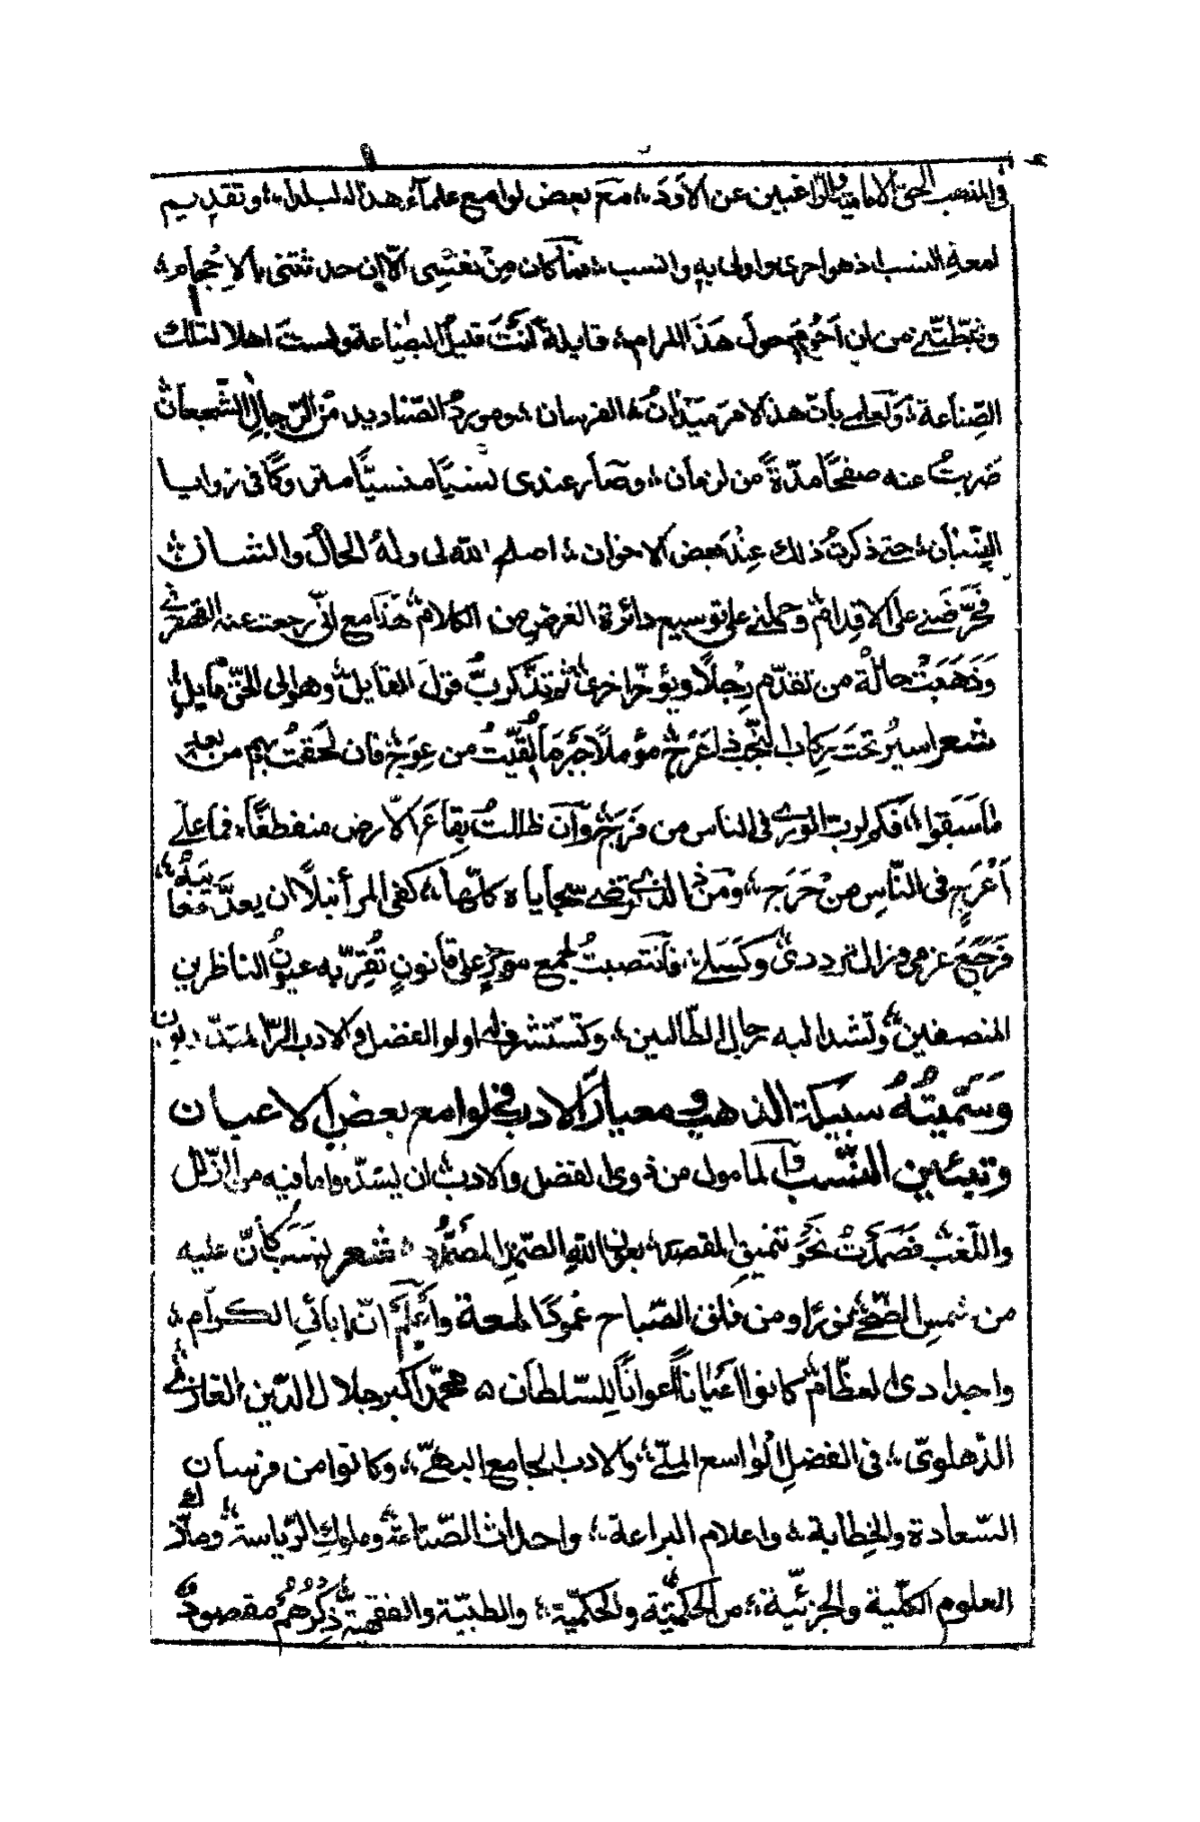 في المذهب الحق الامامية والراغبين عن الأود، مع بعض لوامع علماء هذا البلد، وتقديم
لمعة النسب اذ هو احرى واولى به وانسب، فما كان من نفسي الّا ان حدثتني بالاحجام،
وثبّطتني من ان احُوم حول هذَا المرام، قايلة انتَ قليلُ البضاعة ولستَ اهلا لتلك
الصِناعة، وَتعلم بأنّ هذا الامر ميدَانُ الفرسان، ومورد الصّناديد من الرّجالِ الشّجعان
ضربتُ عنه صفحًا مدّةً من الزمان، وصار عندى نسيًا منسيًّا متروكًا في زوايا
النِسْيان، حتى ذكرتُ ذلك عِنْدَ بعض الاخوان، اصلح الله لى وله الحالَ والشان
فحَرَّضَني على الاقدام، وحملني على توسيع دائرة الغرض من الكلام، هذا مع انّي رجعت عنه القهقرى
وَذهَبَتْ حالة من تقدّم رِجْلًا ويؤخّر اخرى، ثم تذكرتُ قولَ القايل، وهو الى الحقّ مايل،
شعر اسيرُ تحتَ رِكاب النُّجب ذا عَرَجٍ مؤملًا جَبْرَ ما لُقِّيتُ من عِوَجٍ فان لحقتُ بهم من بعد
ما سَبَقوا، فكم لرب الورى في الناس من فَرَجٍ وان ظللتُ بقاع الارض منقطعًا، فما على
أعْرَجٍ في النّاسِ من حَرَجٍ، ومن ذا الذي ترضى سجاياه كلّها، كفى المرأ نبلًا ان يعدَّ معايبه
فرَجَعَ عزمى وزال ترددى، وكسلى، فانتصبتُ لجمع موجزٍ على قانونٍ تُقِرّ به عيونُ الناظرين
المنصفين، وتشد اليه رحال الطّالبين، وتستشرفه اولو الفضل والادب
وَسَمَّيتُهُ سبيكة الذهب فى معيار الادب فى لوامع بعض الاعيان
وتبئين النّسب والمامول من ذوى الفضل والادب، ان يسدّوا ما فيه من الزّلل
واللّغب فصَمَدْتُ نَحْوَ تنميق المقصد، بعون الله الصّمد المصمّد، شعر نسَبٌ كأنّ عليه
من شمسِ الضّحى نورًا ومن فلق الصّباح عُمودًا لمعة واَعْلَمْ انّ ابائي الكرام،
واجدادى العظّام، كانوا اَعْيانًا اَعوانًا للسّلطان محمّد اكبر جلال الدّين الغازى،
الدّهلوىّ، فى الفضلِ الواسع الملىّ، والادب الجامع البهىّ، وكانوا من فرسان
السّعادة والخطابة، واعلام البراعة، واحداث الصّناعة، وملوك الرّياسة،
العلوم الكلّية والجزئيّة، من الحكميّة، والطبّيّة والفقهيّة، ذِكْرُهُم مقصودٌ